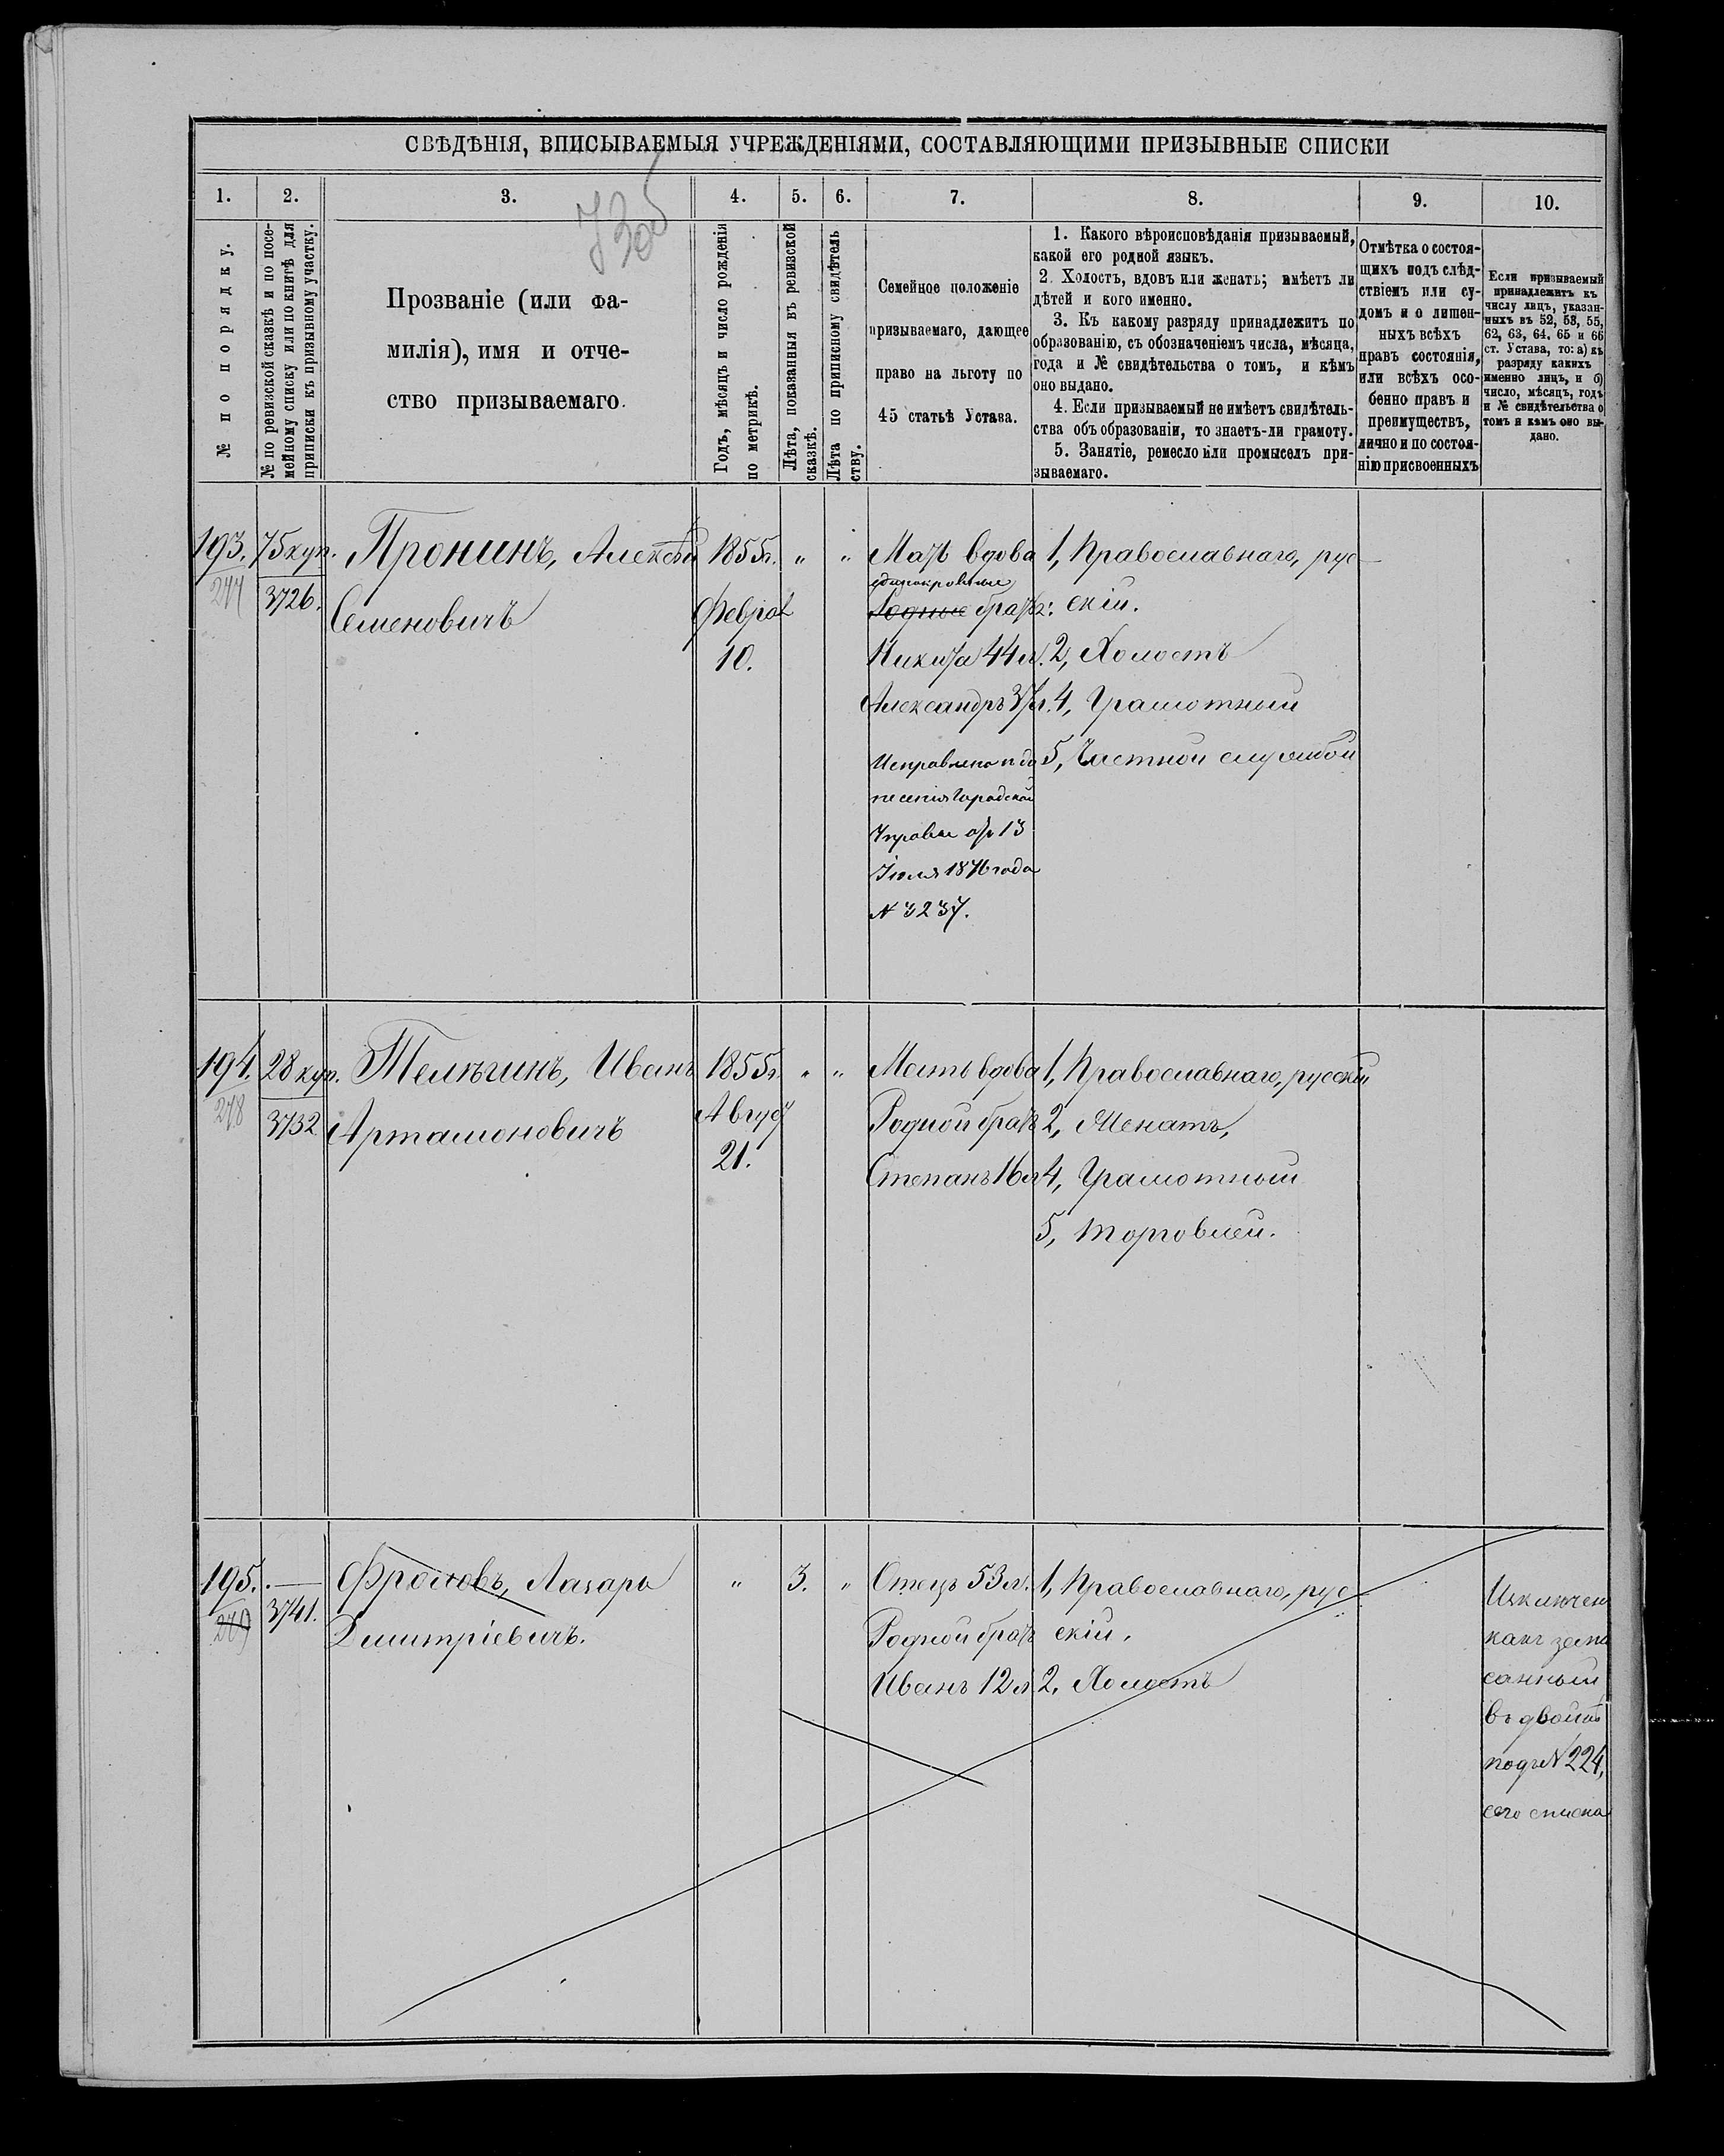 СВѢДѢНІЯ, ВПИСЫВАЕМЫЯ УЧРЕЖДЕНІЯМИ, СОСТАВЛЯЮЩИМИ ПРИЗЫВНЫЕ СПИСКИ
1. 2. 3. 4. 5. 6. 7. 8. 9. 10.
№ по порядку.
№ по ревизской сказкѣ и по посе-
мейному списку или по книгѣ для
приписки къ призывному участку.
Прозваніе (или фа-
милія), имя и отче-
ство призываемаго.
Годъ, мѣсяцъ и число рожденія
по метрикѣ.
Лѣта, показанныя въ ревизской
сказкѣ.
Лѣта по приписному свидѣтель
ству.
Семейное положеніе
призываемаго, дающее
право на льготу по
45 статьѣ Устава.
1. Какого вѣроисповѣданія призываемый,
какой его родной языкъ.
2. Холостъ, вдовъ или женатъ; имѣетъ ли
дѣтей и кого именно.
3. Къ какому разряду принадлежитъ по
образованію, съ обозначеніемъ числа, мѣсяца,
года и № свидѣтельства о томъ, и кѣмъ
оно выдано.
4. Если призываемый не имѣетъ свидѣтель-
ства объ образованіи, то знаетъ-ли грамоту.
5. Занятіе, ремесло или промыселъ при-
зываемаго.
Отмѣтка о состоя-
щихъ подъ слѣд-
ствіемъ или су-
домъ и о лишен-
ныхъ всѣхъ
правъ состоянія,
или всѣхъ осо-
бенно правъ и
преимуществъ,
лично и по состоя-
нію присвоенныхъ
Если призываемый
принадлежитъ къ
числу лицъ, указан-
ныхъ въ 52, 53, 55,
62, 63, 64, 65 и 66
ст. Устава, то: а) къ
разряду какихъ
именно лицъ, и б)
число, мѣсяцъ, годъ
и № свидѣтельства о
томъ и кѣмъ оно вы-
дано.
193.
277
75 куп.
3726.
Пронинъ, Алексѣй
Семеновичъ
1855 г.
Феврал
10.
" "
Мать вдова
единокровные
Родные братья:
Никита 44 л.
Александръ 37 л.
Исправлено п до
несенія Городской
Управы отъ 13
Іюля 1876 года
№ 3237.
1, Православнаго, рус-
скій.
2, Холостъ
4, Грамотный
5, Частной службой
194.
278
28 куп.
3732
Телѣгинъ, Иванъ
Артамоновичъ
1855 г.
Август
21.
" "
Мать вдова
Родной братъ
Степанъ 16 л
1, Православнаго, русскій
2, Женатъ,
4, Грамотный
5, Торговлей.
195.
279
—
3741.
Фроловъ, Лазарь
Дмитріевичъ.
" 3. "
Отецъ 53 л.
Родной братъ
Иванъ 12 л.
1, Православнаго, рус-
скій.
2, Холостъ
Исключен
какъ запи
санный
въ двойнѣ
подъ № 224,
сего списка